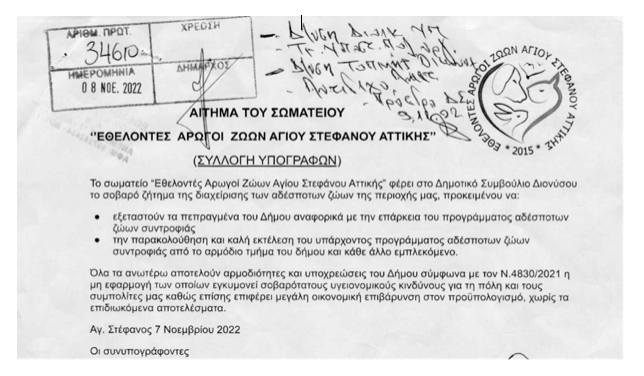 ΑΡΙΘΜ. ΠΡΩΤ.
34610
ΧΡΕΩΣΗ
ΗΜΕΡΟΜΗΝΙΑ
08 ΝΟΕ. 2022
ΔΗΜΑΡΧΟΣ
ΕΘΕΛΟΝΤΕΣ ΑΡΩΓΟΙ ΖΩΩΝ ΑΓΙΟΥ ΣΤΕΦΑΝΟΥ ΑΤΤΙΚΗΣ
* 2015 *
ΑΙΤΗΜΑ ΤΟΥ ΣΩΜΑΤΕΙΟΥ
"ΕΘΕΛΟΝΤΕΣ ΑΡΩΓΟΙ ΖΩΩΝ ΑΓΙΟΥ ΣΤΕΦΑΝΟΥ ΑΤΤΙΚΗΣ"
(ΣΥΛΛΟΓΗ ΥΠΟΓΡΑΦΩΝ)
Το σωματείο "Εθελοντές Αρωγοί Ζώων Αγίου Στεφάνου Αττικής" φέρει στο Δημοτικό Συμβούλιο Διονύσου
το σοβαρό ζήτημα της διαχείρισης των αδέσποτων ζώων της περιοχής μας, προκειμένου να:
• εξεταστούν τα πεπραγμένα του Δήμου αναφορικά με την επάρκεια του προγράμματος αδέσποτων
ζώων συντροφιάς
• την παρακολούθηση και καλή εκτέλεση του υπάρχοντος προγράμματος αδέσποτων ζώων
συντροφιάς από το αρμόδιο τμήμα του δήμου και κάθε άλλο εμπλεκόμενο.
Όλα τα ανωτέρω αποτελούν αρμοδιότητες και υποχρεώσεις του Δήμου σύμφωνα με τον Ν.4830/2021 η
μη εφαρμογή των οποίων εγκυμονεί σοβαρότατους υγειονομικούς κινδύνους για τη πόλη και τους
συμπολίτες μας καθώς επίσης επιφέρει μεγάλη οικονομική επιβάρυνση στον προϋπολογισμό, χωρίς τα
επιδιωκόμενα αποτελέσματα.
Αγ. Στέφανος 7 Νοεμβρίου 2022
Οι συνυπογράφοντες